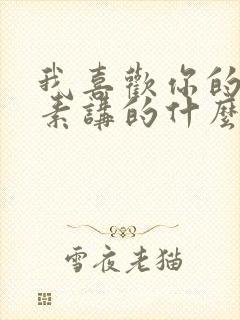 我喜歡你的
素講的什麼
雪夜老猫